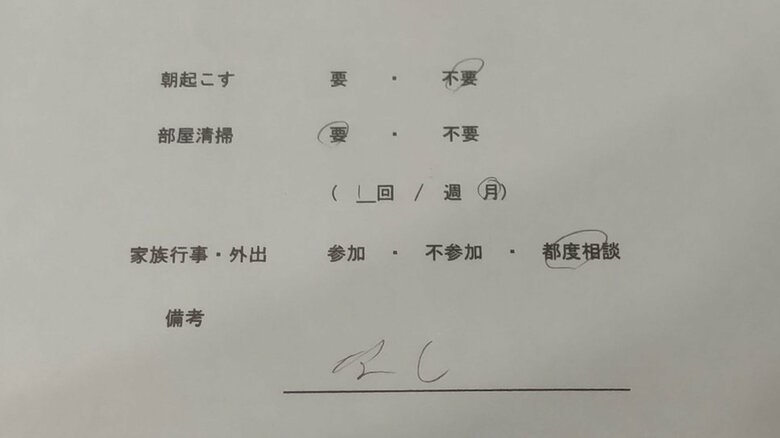 朝起こす 要 ・ 不要
部屋清掃 要 ・ 不要
( 1回 / 週 月)
家族行事・外出 参加 ・ 不参加 ・ 都度相談
備考
なし